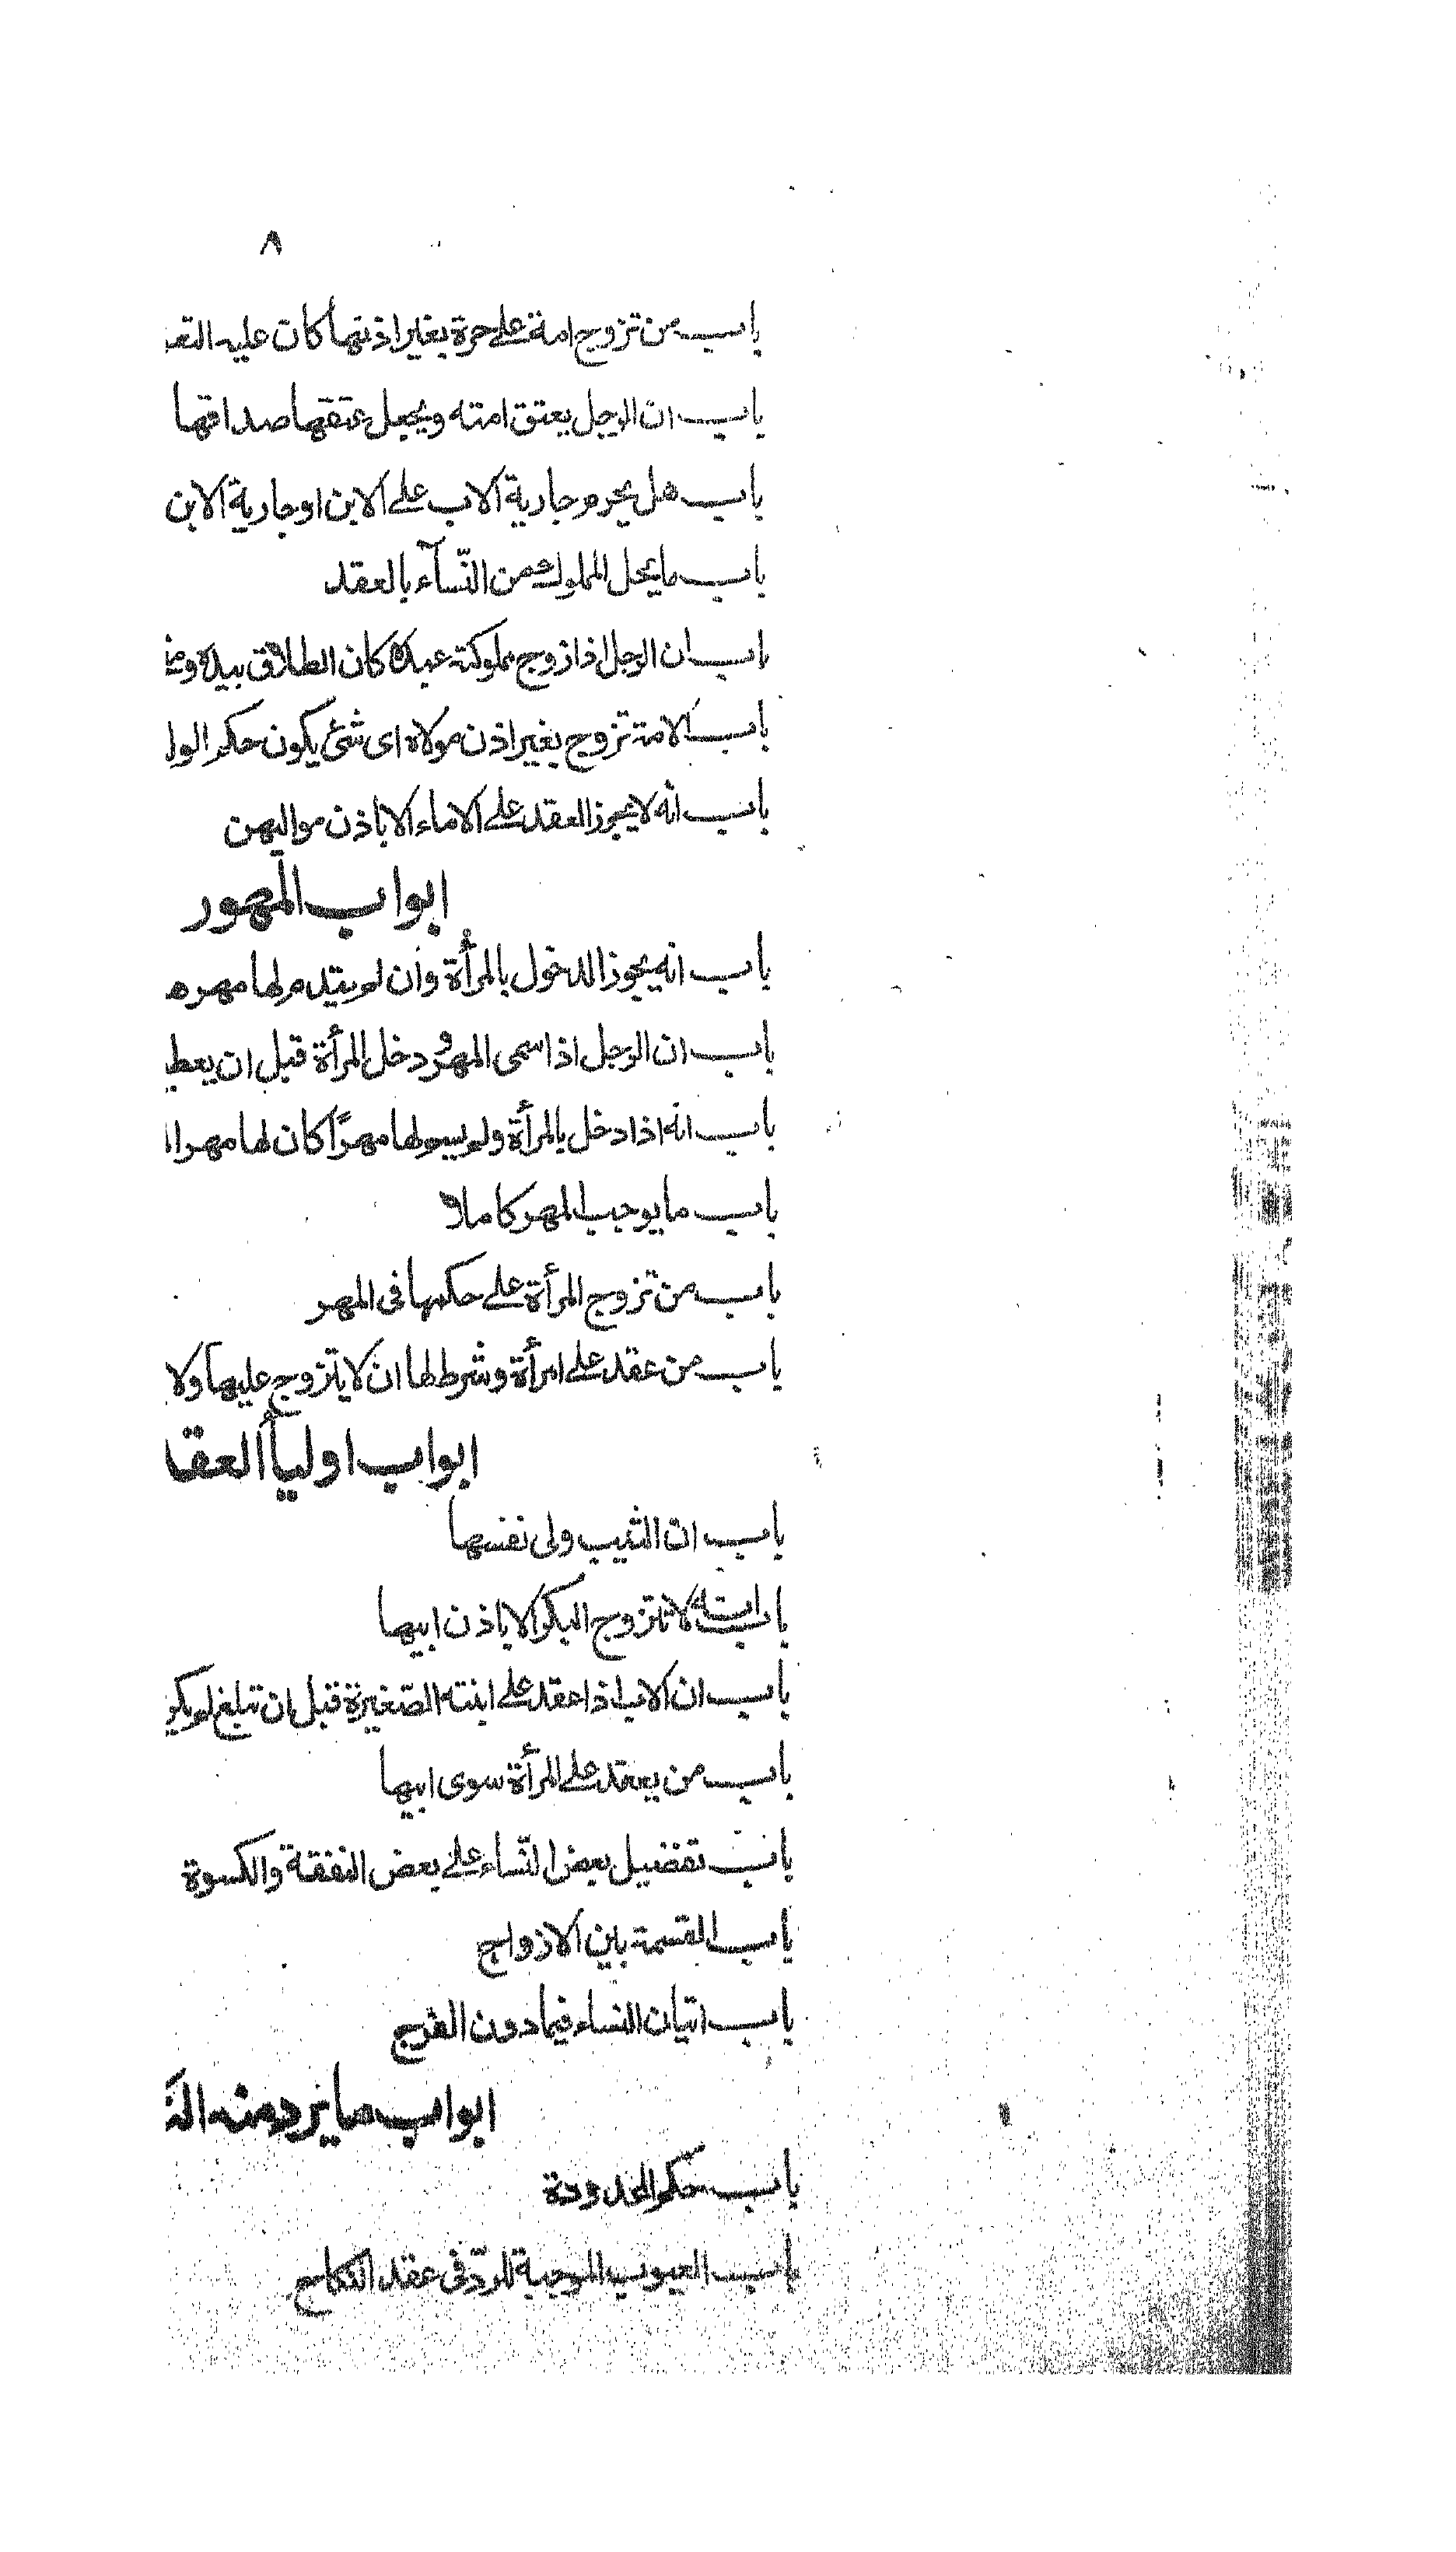 ٨
باب من تزوج امة على حرة بغير اذنها كان عليه التعـ
باب ان الرجل يعتق امته ويجعل عتقها صداقها
باب هل يحرم جارية الاب على الابن او جارية الابن
باب ما يحل للمملوك من النّسآء بالعقد
باب ان الرجل اذا زوج مملوكته عبده كان الطلاق بيده
باب الامة تزوج بغير اذن مولاه اى شئ يكون حكم الولـ
باب انه لا يجوز العقد على الاماء الا باذن مواليهن
ابواب المهور
باب انه يجوز الدخول بالمرأة وان لم يقدم لها مهرهـ
باب ان الرجل اذا سمى المهر ودخل المرأة قبل ان يعطيـ
باب انه اذا دخل بالمرأة ولم يسم لها مهرًا كان لها مهر ا
باب ما يوجب المهر كاملا
باب من تزوج المرأة على حكمها فى المهر
باب من عقد على امرأة وشرط لها ان لا يتزوج عليها ولا
ابواب اوليأ العقـ
باب ان الثيب ولى نفسها
باب انه لا تتزوج البكر الا باذن ابيها
باب ان الاب اذا عقد على ابنته الصّغيرة قبل ان تبلغ لم يكن
باب من يعقد على المرأة سوى ابيها
باب تفضيل بعض النّساء على بعض النفقة والكسوة
باب القسمة بين الازواج
باب اتيان النساء فيما دون الفرج
ابواب ما يرد منه النـ
باب حكم المحدودة
باب العيوب الموجبة للردّ فى عقد النكاح